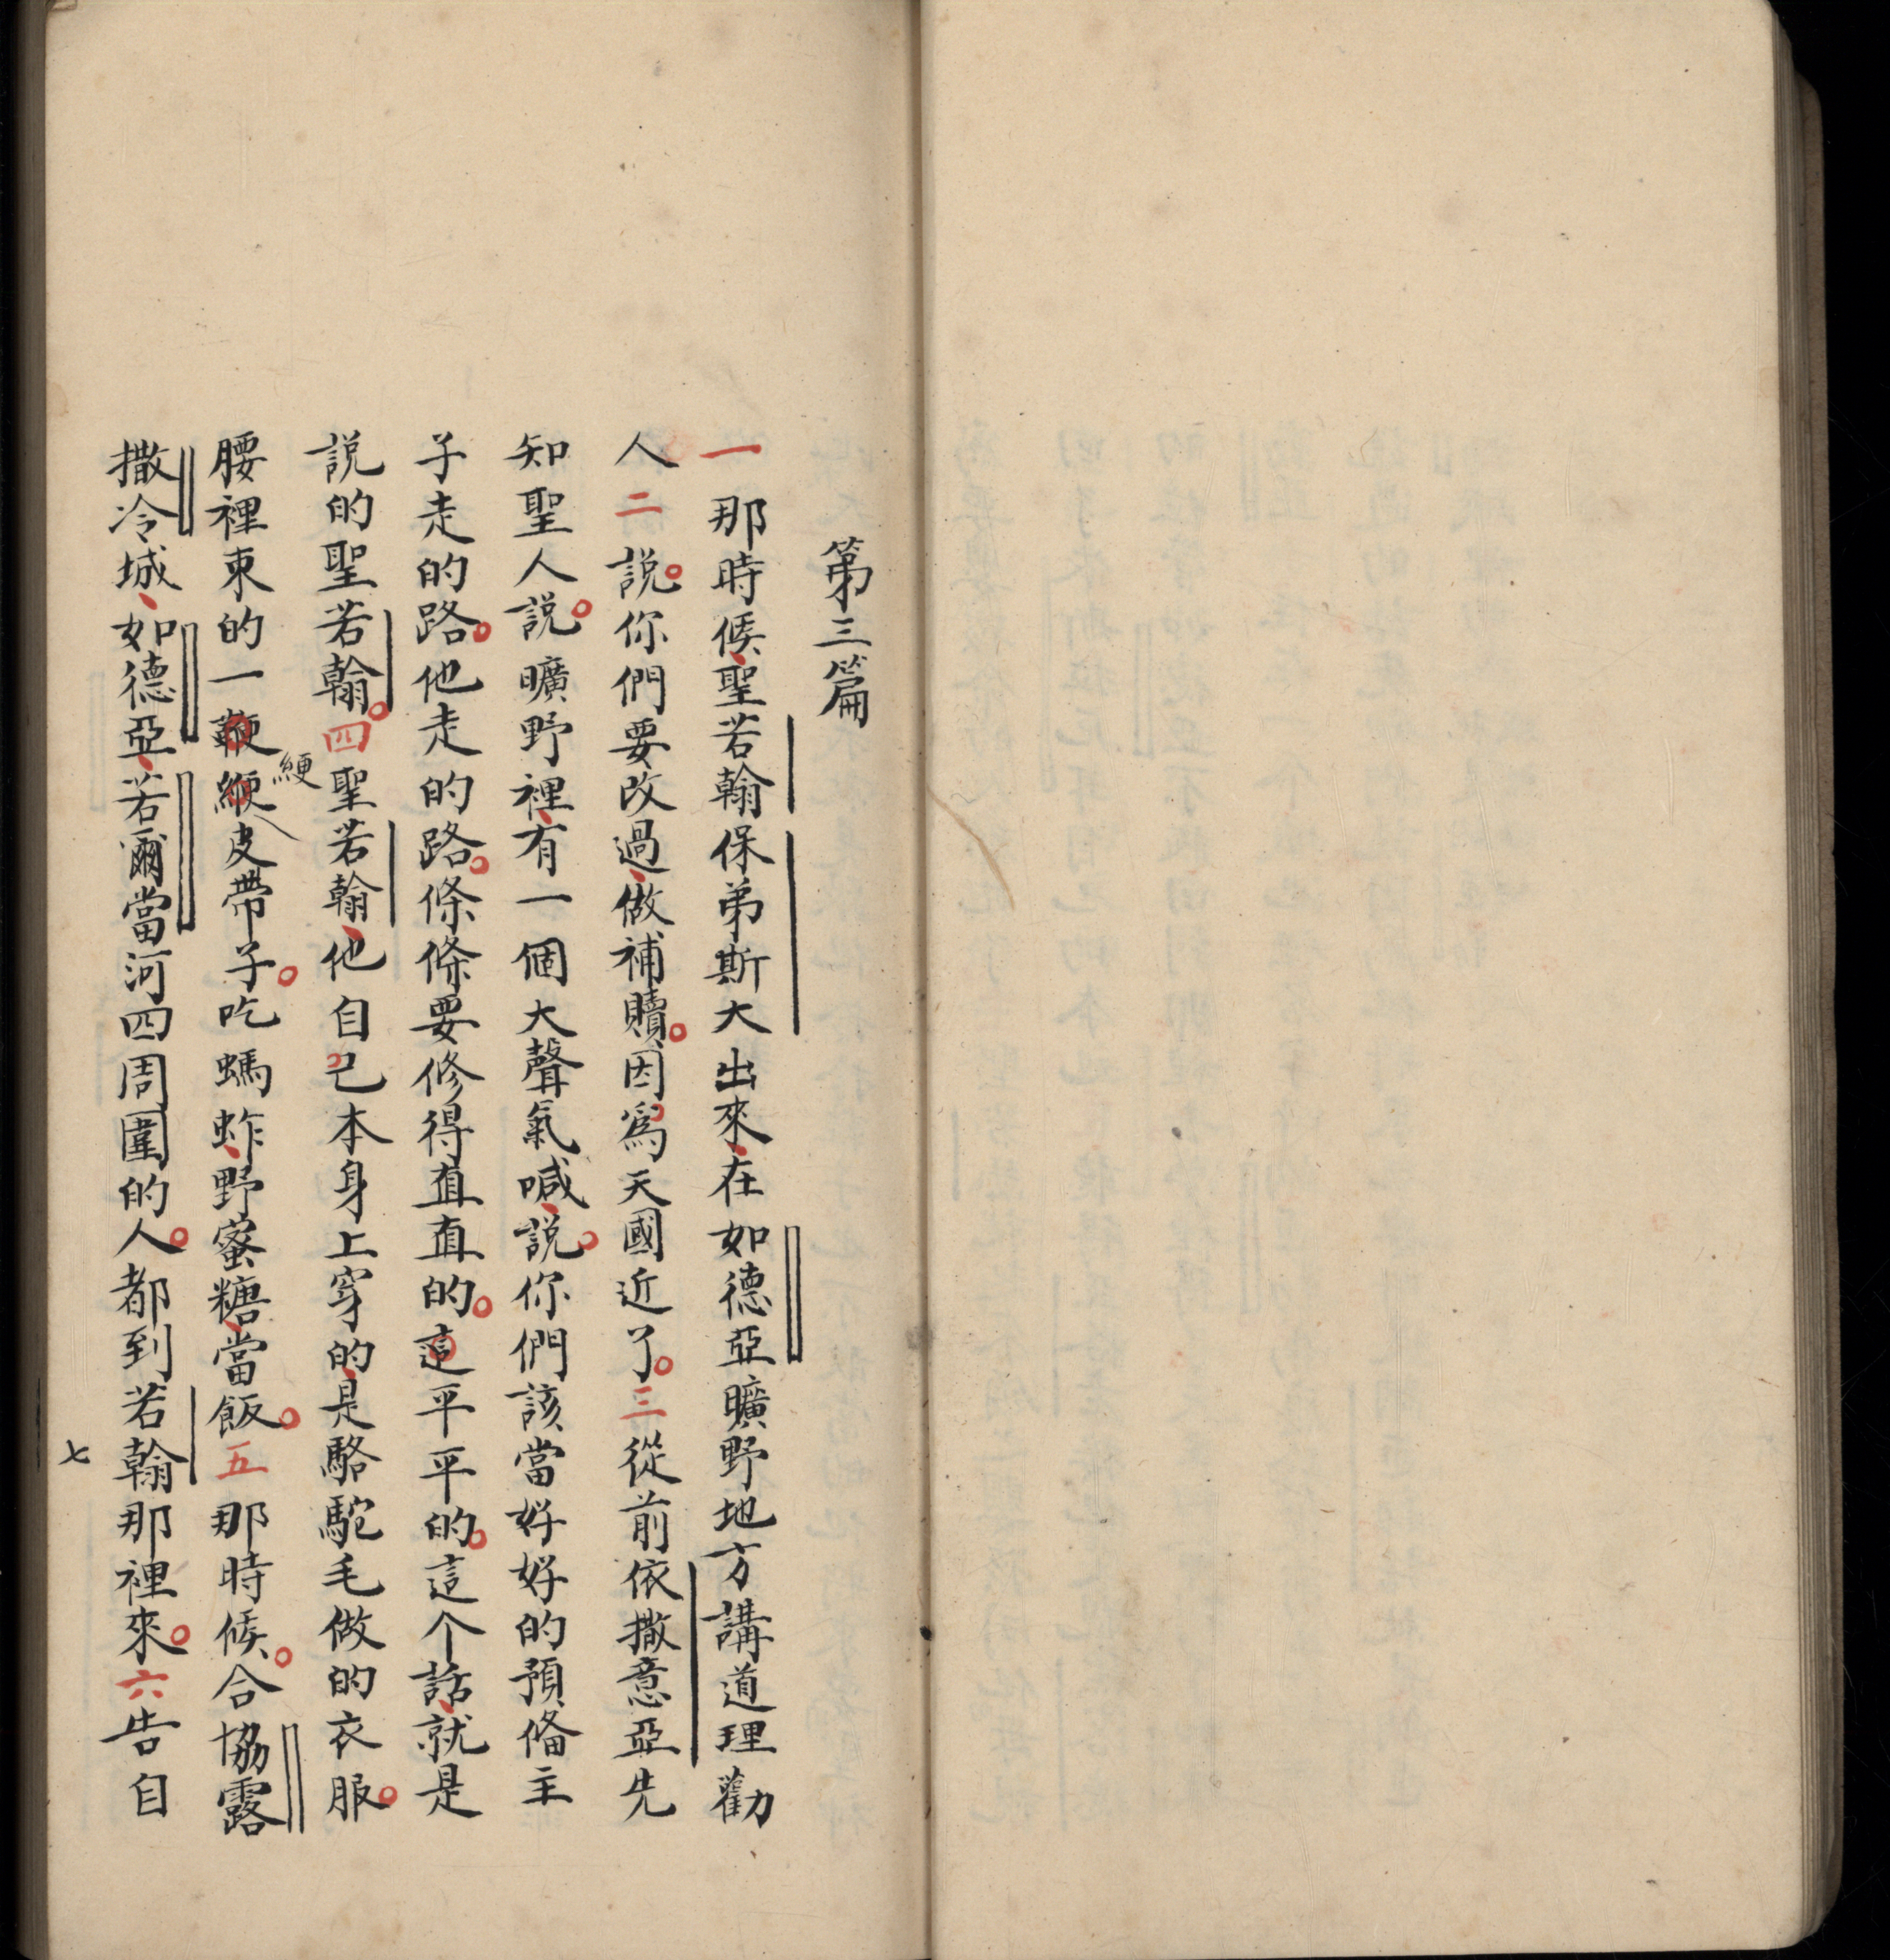 第三篇
一那時候、聖若翰保弟斯大出來、在如德亞曠野地方講道理勸
人二説。你們要改過、做補贖。因爲天國近了。三從前依撒意亞先
知聖人説。曠野裡、有一個大聲氣喊、説。你們該當好好的預俻主
子走的路。他走的路。條條要修得直直的。這平平的。這个話、就是
説的聖若翰。四聖若翰、他自己本身上穿的、是駱駝毛做的衣服。
腰裡束的一鞭綆皮帶子。吃螞蚱、野蜜糖、當飯。五那時候。合協露
綆
撒冷城、如德亞、若爾當河四周圍的人。都到若翰那裡來。六告自
七